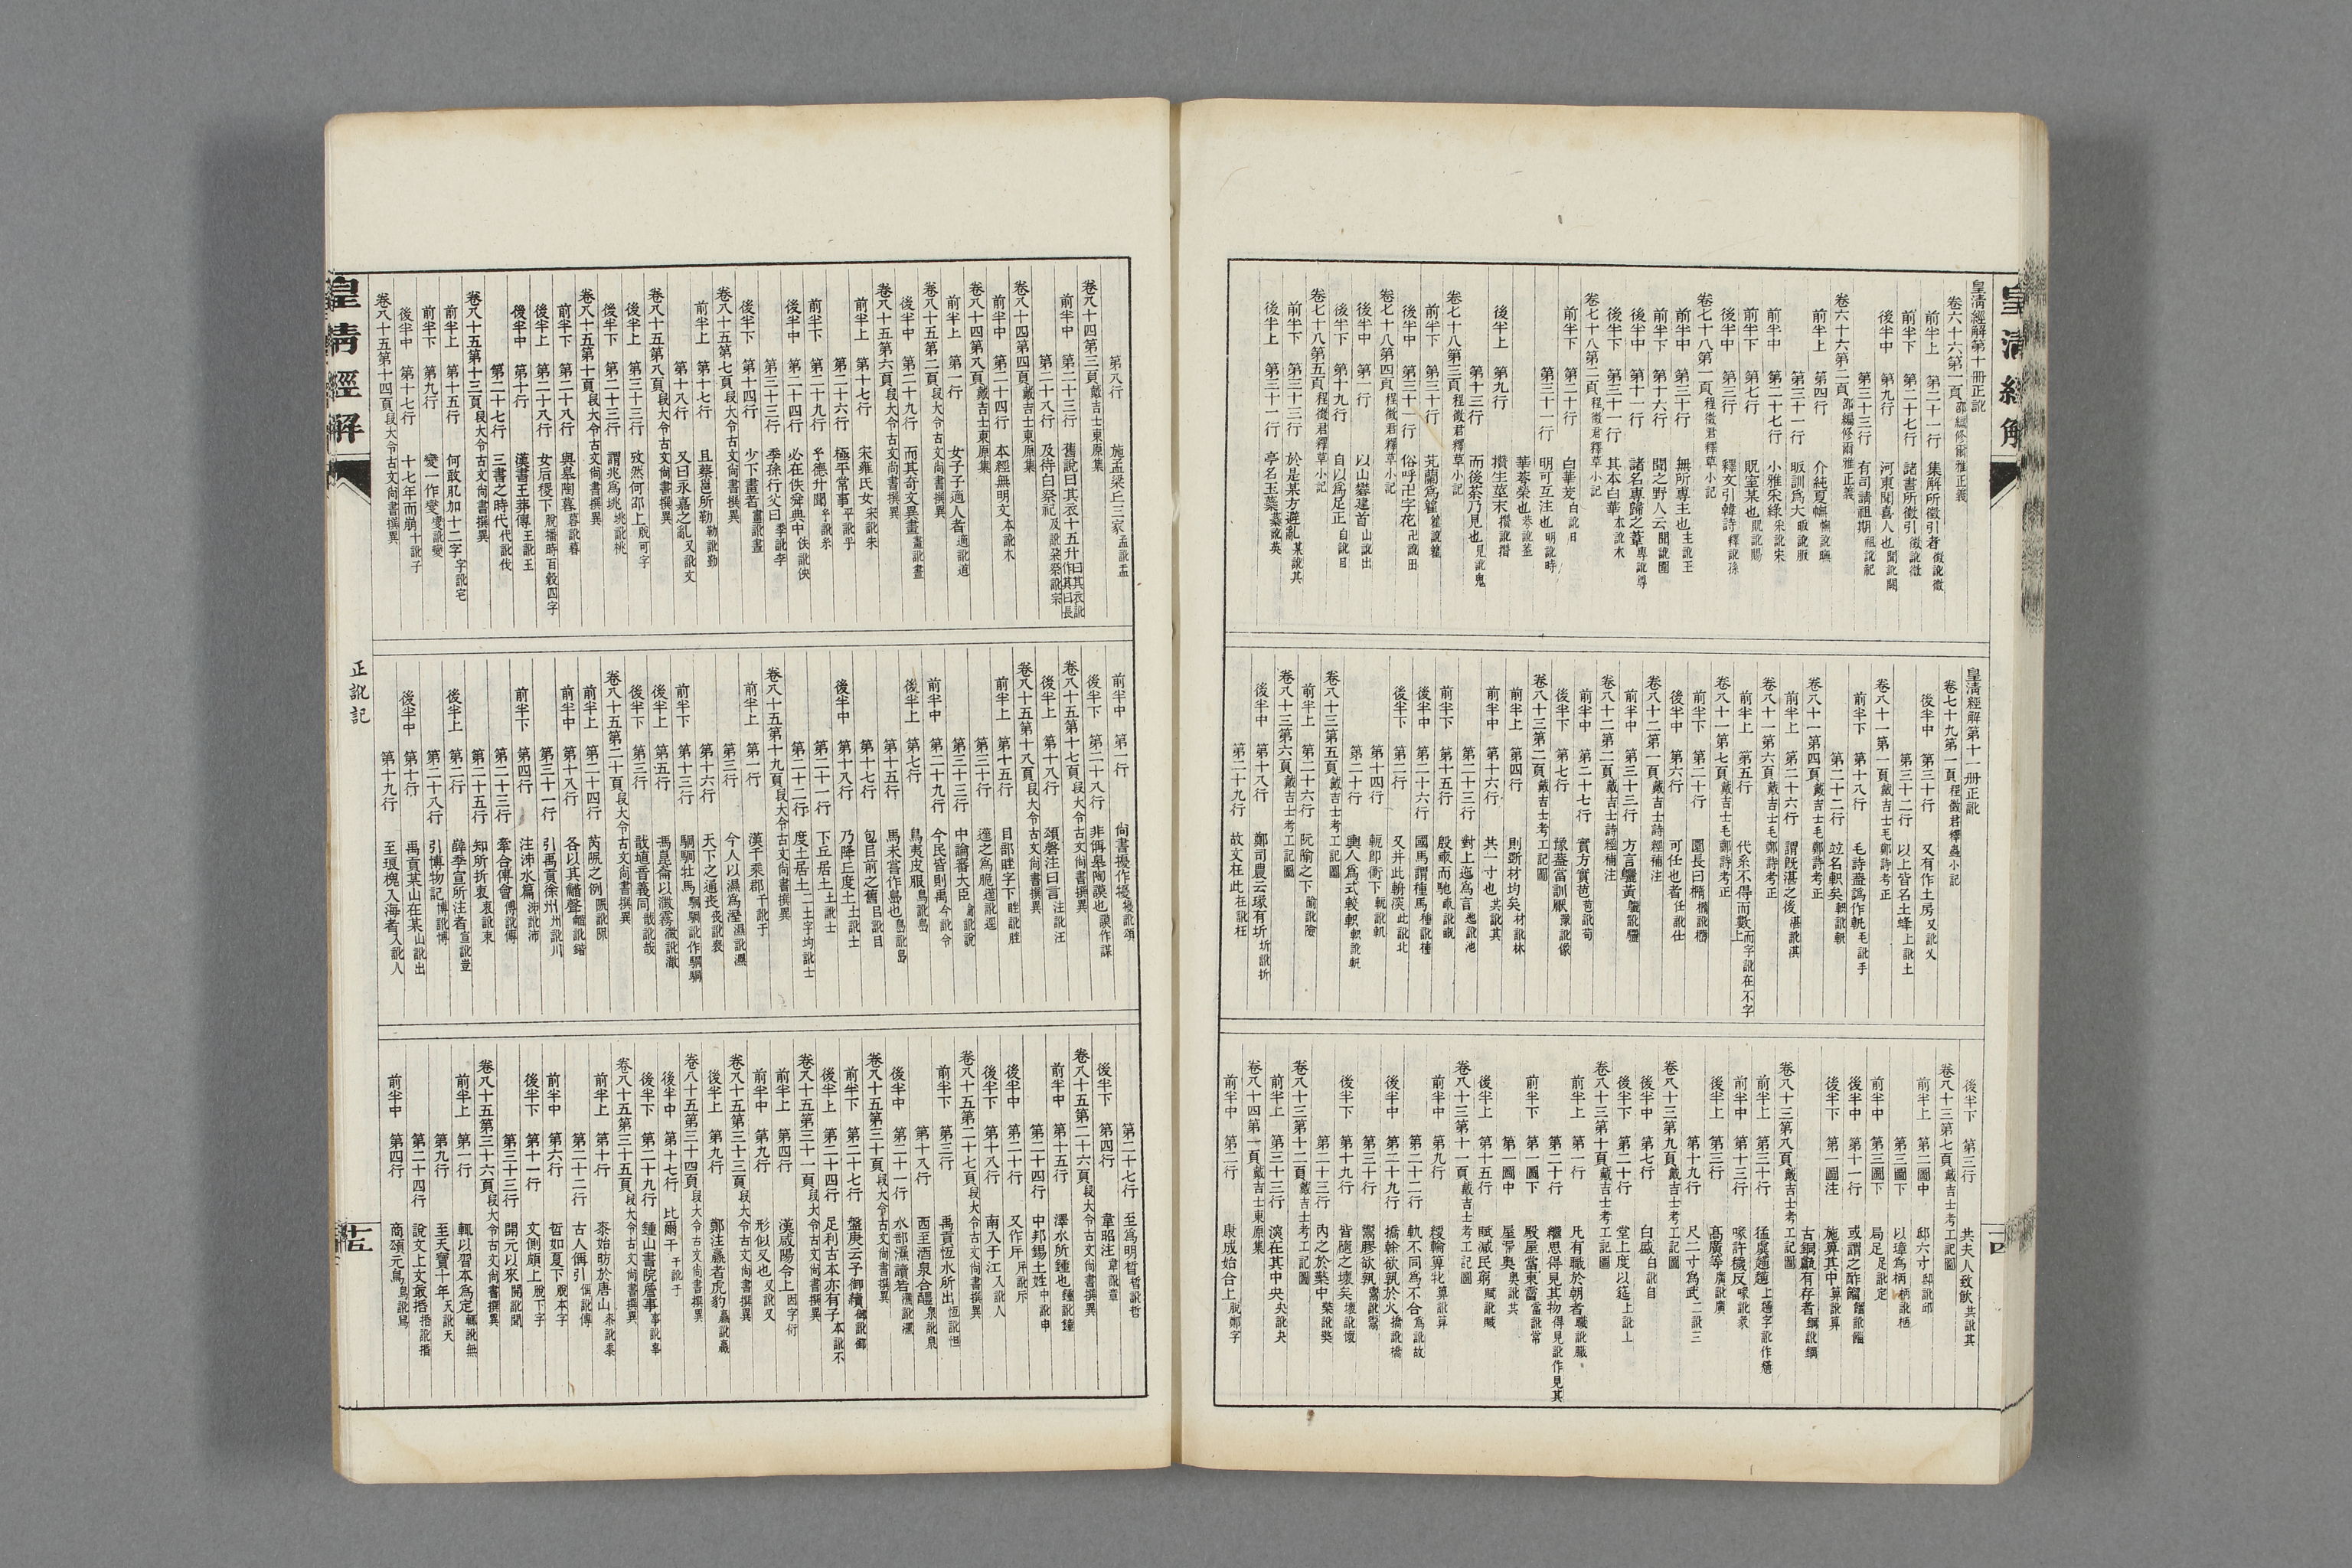 皇清經解
皇清經解第十冊正訛
卷六十六第一頁邵編修爾雅正義
前半上 第二十一行 集解所徵引者徵訛徵
前半下 第二十七行 諸書所徵引徵訛徵
後半中 第九行 河東聞喜人也聞訛闗
第三十三行 有司請祖期祖訛祀
卷六十六第二頁邵編修爾雅正義
前半上 第四行 介純夏幠幠訛
第三十一行 昄訓爲大昄訛版
前半中 第二十七行 小雅采綠采訛宋
前半下 第七行 貺室某也貺訛賜
後半中 第三行 釋文引韓詩釋訛
卷七十八第一頁程徵君釋草小記
前半中 第三十行 無所專主也主訛王
前半下 第十六行 聞之野人云聞訛圍
後半中 第十一行 諸名專歸之葦專訛尊
後半下 第三十一行 其本白華本訛木
卷七十八第二頁程徵君釋草小記
前半下 第二十行 白華茇白訛日
第三十一行 明可互注也明訛時
華荂榮也
後半上 第九行 攢生莖末攢訛
第十三行 而後荼乃見也見訛鬼
卷七十八第三頁程徵君釋草小記
前半下 第三十行 芄蘭爲雚
後半中 第三十一行 俗呼卍字花卍訛田
卷七十八第四頁程徵君釋草小記
後半中 第一行 以山礬建首山訛出
後半下 第十九行 自以爲足正自訛目
卷七十八第五頁程徵君釋草小記
前半下 第三十三行 於是某方避亂某訛其
後半上 第三十一行 亭名王葉葉訛英
皇清經解第十一冊正訛
卷七十九第一頁程徵君釋蟲小記
後半中 第三十行 又有作土房又訛乂
第三十二行 以上皆名土蜂上訛土
卷八十一第一頁戴吉士毛鄭詩考正
前半下 第十八行 毛詩葢譌作軓毛訛手
第二十二行 竝名軹矣軹訛軓
卷八十一第四頁戴吉士毛鄭詩考正
前半上 第二十六行 謂旣湛之後湛訛淇
卷八十一第六頁戴吉士毛鄭詩考正
前半上 第五行 代系不得而數而字訛在不字上
卷八十一第七頁戴吉士毛鄭詩考正
前半下 第二十行 圜長曰橢橢訛
後半中 第六行 可任也者任訛仕
卷八十二第一頁戴吉士詩經補注
前半中 第三十三行 方言鸝黃鸝訛驪
卷八十二第二頁戴吉士詩經補注
前半中 第二十七行 實方實苞苞訛苟
後半下 第七行 豫葢當訓厭豫訛像
卷八十三第二頁戴吉士考工記圖
前半上 第四行 則斲材均矣材訛林
前半中 第十六行 共一寸也共訛其
第二十三行 對上迤爲言迤訛池
前半下 第十五行 殷畝而馳畝訛
後半中 第二十六行 國馬謂種馬種訛
後半下 第二行 又并此輈深此訛北
第十四行 輗卽衡下輗訛軏
第二十行 輿人爲式較軹軹訛軓
卷八十三第五頁戴吉士考工記圖
前半上 第二十行 阮隃之下隃訛險
卷八十三第六頁戴吉士考工記圖
後半中 第十八行 鄭司農云琢有圻圻訛折
第二十九行 故文在此在訛枉
後半下 第三行 共夫人致飮共訛其
卷八十三第七頁戴吉士考工記圖
前半上 第二圖中 邸六寸邸訛邱
第三圖下 以璋爲柄柄訛栖
前半中 第三圖下 局足足訛定
後半中 第十一行 或謂之酢䤾
後半下 第一圖注 施箅其中箅訛算
古銅甗有存者銅訛鋼
卷八十三第八頁戴吉士考工記圖
前半上 第三十行
前半中 第十三行 喙許穢反喙訛
後半上 第三行 高廣等廣訛
第十九行 尺二寸爲武二訛三
卷八十三第九頁戴吉士考工記圖
後半中 第七行 白盛白訛自
後半下 第二十行 堂上度以筵上訛土
卷八十三第十頁戴吉士考工記圖
前半上 第一行 凡有職於朝者職訛
第二十行 繼思得見其物得見訛作見其
前半下 第一圖下 殿屋當東霤當訛常
第一圖中 屋漏奥奥訛其
後半上 第十五行 賦減民窮賦訛賊
卷八十三第十一頁戴吉士考工記圖
前半中 第九行 綆輪箅
第二十二行 軌不同爲不合爲訛故
後半中 第二十九行 撟幹欲孰於火撟訛橋
第三十行 鬻膠欲孰
後半下 第十九行 皆隨之壞矣壞訛懷
第二十三行 內之於檠中檠訛獎
卷八十三第十二頁戴吉士考工記圖
前半上 第三十三行 溪在其中央央訛夬
卷八十四第一頁戴吉士東原集
前半中 第二行 康成始合上脫鄭字
十四
第八行 施孟梁丘三家孟訛盂
卷八十四第三頁戴吉士東原集
前半中 第二十三行 舊說曰其衣十五升曰其衣訛作其曰長
第二十八行 及待白祭祀
卷八十四第四頁戴吉士東原集
前半中 第二十四行 本經無明文本訛木
卷八十四第八頁戴吉士東原集
前半上 第一行 女子子適人者適訛道
卷八十五第二頁段大令古文尙書撰異
後半中 第二十九行 而其奇文異畫畫訛晝
卷八十五第六頁段大令古文尙書撰異
前半上 第十七行 宋雍氏女宋訛朱
第二十六行 極平常事平訛乎
前半下 第二十九行
後半中 第二十四行 必在佚舜典中佚訛俠
第三十三行 季孫行父曰季訛李
後半下 第十四行 少下畫者畫訛晝
卷八十五第七頁段大令古文尙書撰異
前半上 第十七行 且蔡邕所勒勒訛勤
第十八行 又曰永嘉之亂又訛文
卷八十五第八頁段大令古文尙書撰異
後半上 第三十三行 攷然何邵上脫可字
後半下 第二十三行 謂兆爲垗垗訛桃
卷八十五第十頁段大令古文尙書撰異
前半下 第二十八行 與皋陶暮
後半上 第二十八行 女后稷下脫播時百穀四字
後半中 第十行 漢書王莽傳王訛玉
第二十七行 三書之時代代訛伐
卷八十五第十三頁段大令古文尙書撰異
前半上 第十五行 何敢肊加十二字字訛宅
前半下 第九行 變一作
後半中 第十七行 十七年而崩十訛子
卷八十五第十四頁段大令古文尙書撰異
前半中 第一行 尙書擾作犪
後半下 第二十八行 非偁皋陶謨也謨訛作謀
卷八十五第十七頁段大令古文尙書撰異
後半上 第十八行 頌磬注曰言注訛汪
卷八十五第十八頁段大令古文尙書撰異
前半上 第十五行 目部眭字下眭訛
第三十行
第三十三行 中論審大臣論訛說
前半中 第二十九行 今民皆則禹今訛令
後半上 第七行 鳥夷皮服鳥訛島
第十五行 馬未嘗作島也
第十七行 包㠯前之舊㠯訛目
後半中 第十八行 乃降丘度土土訛士
第二十一行 下丘居土土訛士
第二十二行 度土居土二土字均訛士
卷八十五第十九頁段大令古文尙書撰異
前半上 第一行 漢千乘郡千訛于
第三行 今人以濕爲溼濕訛
第十六行 天下之通喪喪訛衰
前半下 第十三行 駉駉牡馬駉駉訛作駧駧
後半上 第五行 馮崑崙以澂霧澂訛澈
後半下 第三行 戠埴音義同戠訛哉
卷八十五第二十頁段大令古文尙書撰異
前半上 第二十四行
前半中 第十八行
第三十一行 引禹貢徐州州訛川
前半下 第四行 注沛水篇
第二十三行 牽合傅會傅訛傳
第二十五行 知所折衷衷訛
後半上 第二行 薛季宣所注者宣訛
第二十八行 引博物記博訛博
後半中 第十行 禹貢某山在某山訛出
第十九行 至琅槐入海者入訛人
第二十七行 至爲明晳晳訛哲
後半下 第四行 韋昭注韋訛章
卷八十五第二十六頁段大令古文尙書撰異
前半中 第十五行 澤水所鍾也鍾訛鐘
第二十四行 中邦錫土姓中訛申
後半中 第二十行 又作斥
後半下 第十八行 南入于江入訛人
卷八十五第二十七頁段大令古文尙書撰異
前半下 第三行 禹貢恆水所出恆訛
第十八行 西至酒泉合醴泉訛
後半中 第二十一行 水部濕讀若
卷八十五第三十頁段大令古文尙書撰異
前半下 第二十七行 盤庚云予御續
後半上 第二十四行 足利古本亦有子本訛不
卷八十五第三十一頁段大令古文尙書撰異
前半上 第四行 漢咸陽令上因字衍
前半中 第九行 形似又也又訛乂
卷八十五第三十三頁段大令古文尙書撰異
後半上 第九行 鄭注驫者虎豹
卷八十五第三十四頁段大令古文尙書撰異
後半中 第十七行 比爾干干訛于
後半下 第二十九行 鍾山書院詹事事訛
卷八十五第三十五頁段大令古文尙書撰異
前半上 第十行 泰始昉於唐山泰訛黍
第二十二行 古人偁引偁訛傳
前半中 第六行 晢如夏下脫本字
後半下 第十一行 文側頗上脫下字
第三十三行 開元以來開訛聞
卷八十五第三十六頁段大令古文尙書撰異
前半上 第一行 輒以習本爲定
第九行 至天寶十年天訛夭
第二十四行 說文上攴敽捪
前半中 第四行 商頌元鳥鳥訛
皇清經解
正訛記
十五